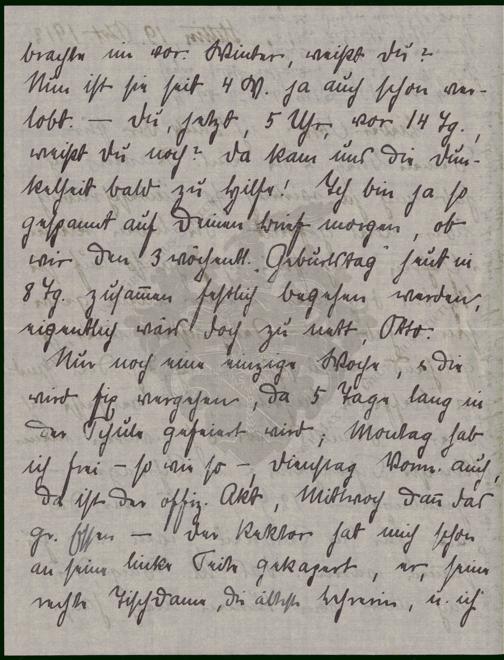 brachte im vor. Winter, weißt Du?
Nun ist sie seit 4 W. ja auch schon ver-
lobt. — Du, jetzt, 5 Uhr, vor 14 Tg.,
weißt Du noch? Da kam uns die Dun-
kelheit bald zu Hilfe! Ich bin ja so
gespannt auf Deinen Brief morgen, ob
wir den 3 wöchentl. „Geburtstag" heut in
8 Tg. zusam̅en festlich begehen werden,
eigentlich wärs doch zu nett, Otto.
Nur noch eine einzige Woche, & die
wird fix vergehen, da 5 Tage lang in
der Schule gefeiert wird; Montag hab
ich frei – so wie so –, Dienstag Vorm. auch,
da ist der offiz. Akt, Mittwoch dan̅ das
gr. Essen — der Rektor hat mich schon
an seine linke Seite gekapert, er, seine
rechte Tischdame, die älteste Lehrerin, u. ich